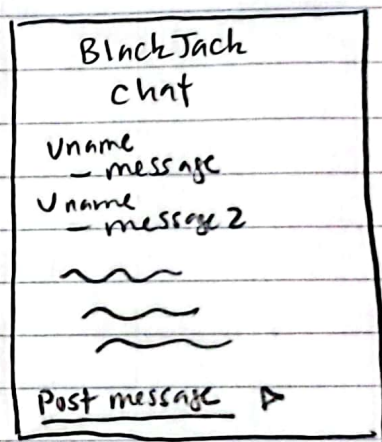 BlackJack
chat
Uname
- message
Uname
- message 2
Post message